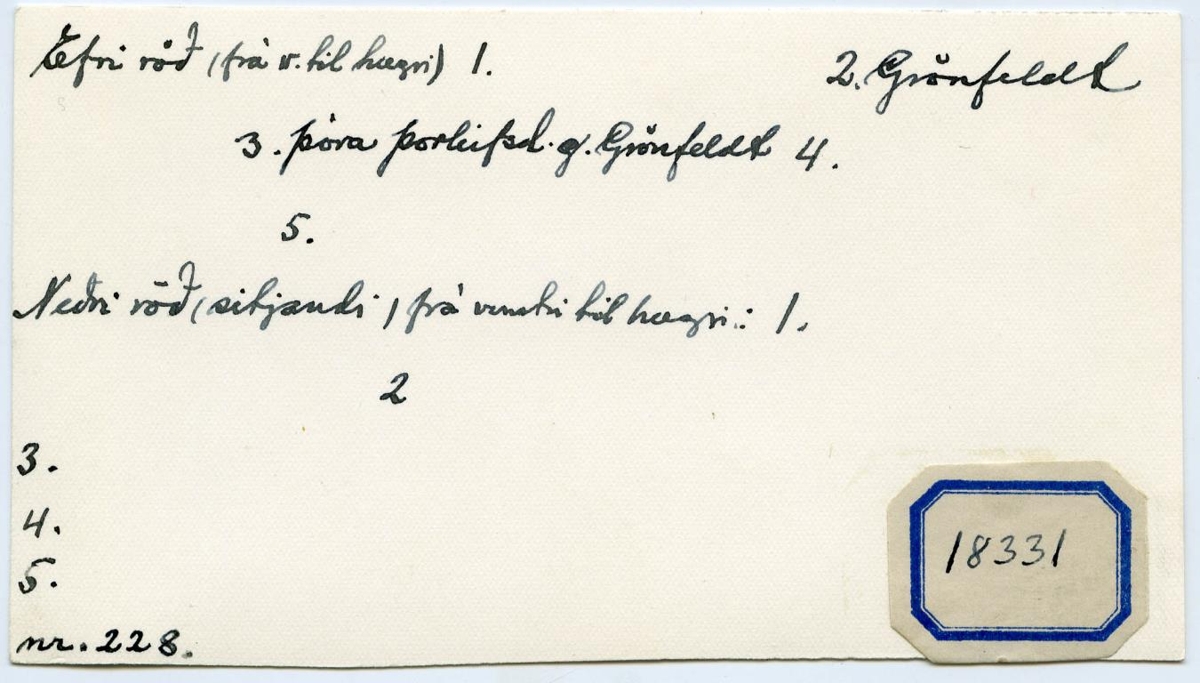 Efri röð (frá v. til hægri) 1. 2. Grönfeldt
3. Þóra Þorleifsd. g. Grönfeldt 4.
5.
Neðri röð (sitjandi) frá vinstri til hægri: 1.
2
3.
4.
5.
nr. 228.
18331